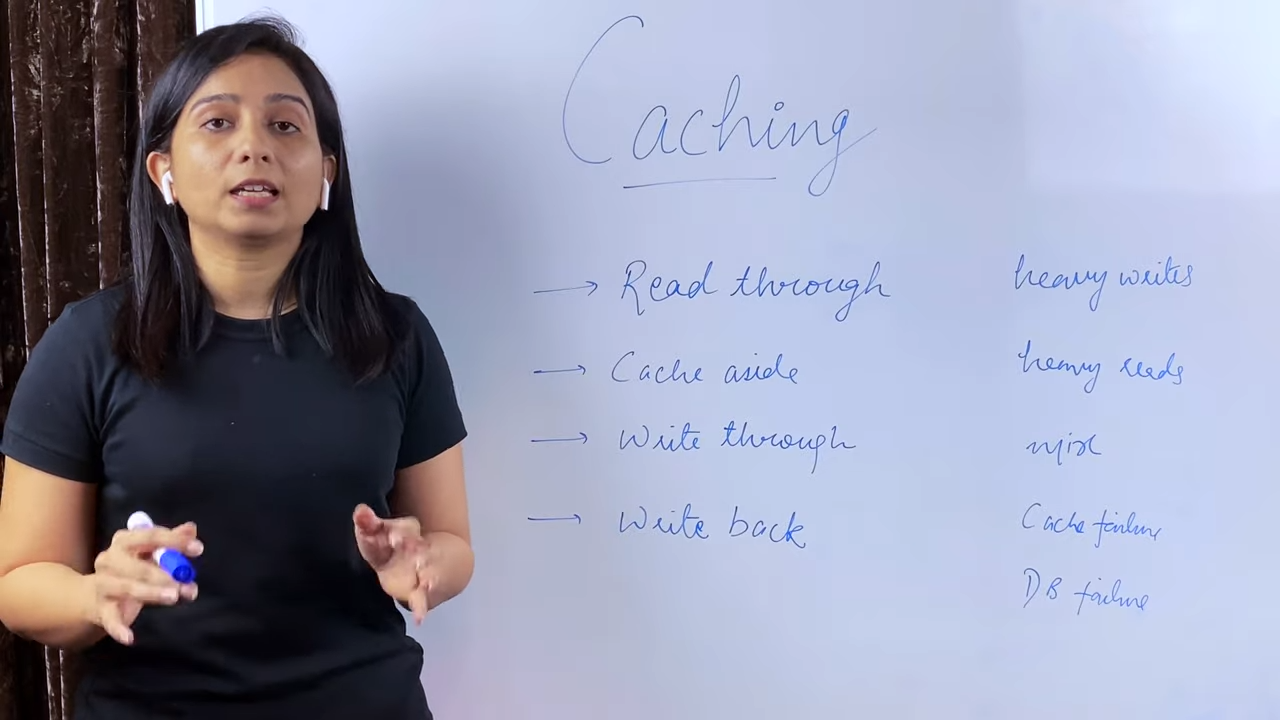 Caching
→ Read through
→ Cache aside
→ Write through
→ Write back
heavy writes
heavy reads
mix
Cache failure
DB failure